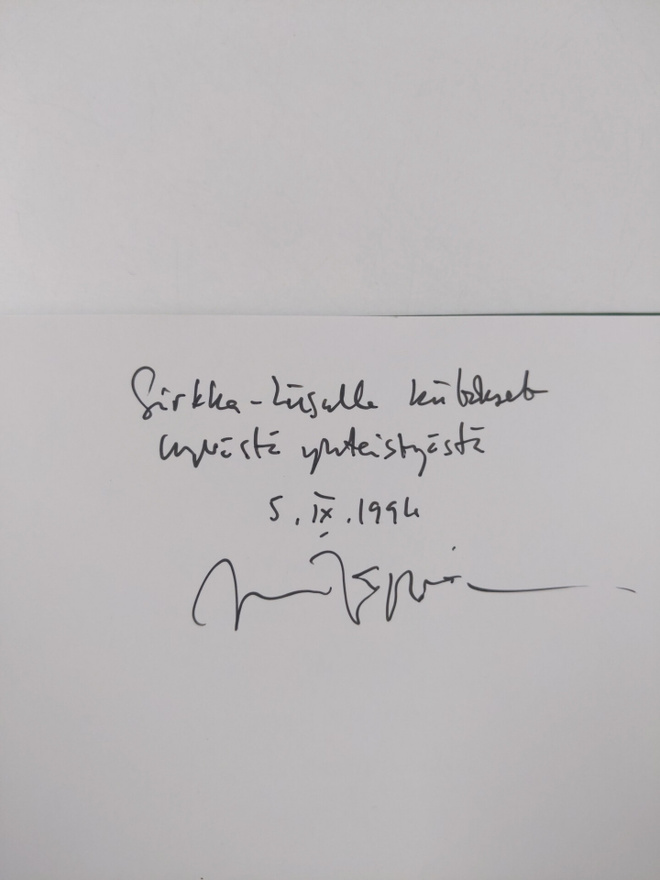 Sirkka-Liisalle kiitokset
hyvästä yhteistyöstä
5. IX. 1994